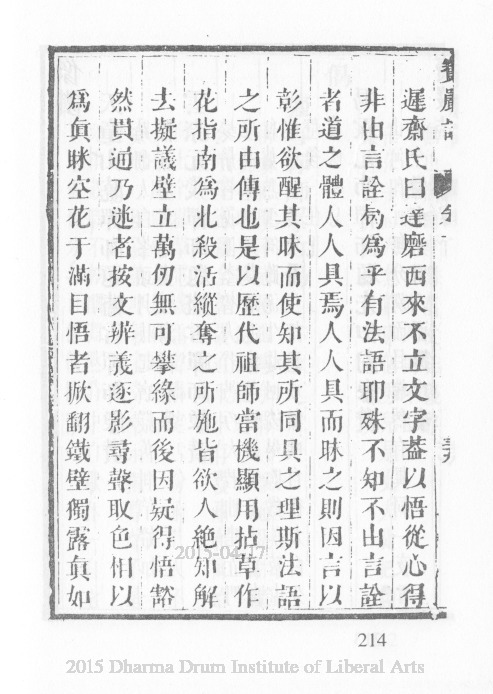 遲齋氏曰達磨西來不立文字葢以悟從心得
非由言詮曷爲乎有法語耶殊不知不由言詮
者道之體人人具焉人人具而昧之則因言以
彰惟欲醒其昧而使知其所同具之理斯法語
之所由傳也是以歷代祖師當機顯用拈草作
花指南爲北殺活縱奪之所施皆欲人絶知解
去擬議壁立萬仞無可攀緣而後因疑得悟豁
然貫通乃迷者按文辨義逐影尋聲取色相以
爲眞眯空花于滿目悟者掀翻鐵壁獨露眞如
2015-04-17
214
2015 Dharma Drum Institute of Liberal Arts